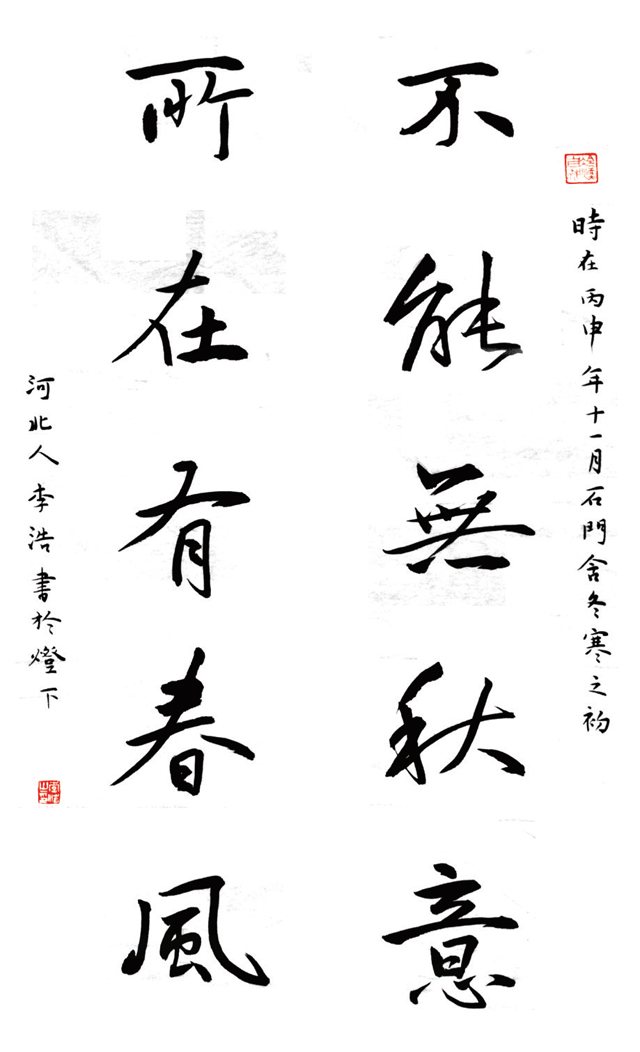 時在丙申年十一月石門舍冬寒之初
不能無秋意
所在有春風
河北人李浩書於燈下